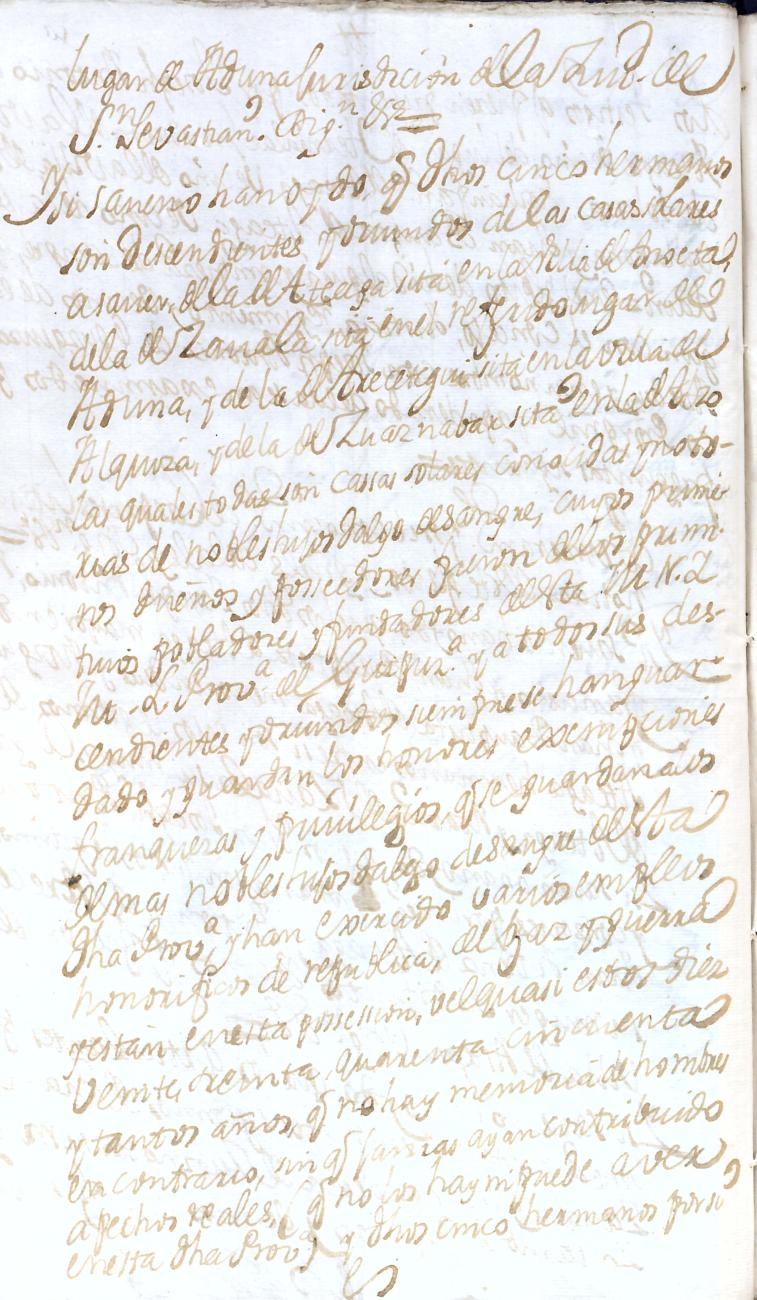 lugar de Aduna Jurisdición de la Ziud. de
Sn. Sevastian. Dig.n &a
Y si saven o han oydo, q̃ dhos cinco hermanos
son descendientes, y oriundos de las casas solares
a saver, de la de Ateaga sita en la Villa de
de la de Zavala sita en el referido lugar de
Aduna, y de la de sita en la villa de
Alquiza, y de la de Zuaznabar sita en la de
las quales todas son cassas solares conocidas y noto-
rias de nobles hijos dalgo de sangre, cuyos prime-
ros dueños y posseedores fueron de los primi-
tivos pobladores y fundadores de esta M. N. L
M. L Prova. de Guipuza. y a todos sus des-
cendientes y oriundos siempre se han guar-
dado y guardan los honores exempciones
franquezas y privilegios, q̃ se guardan a los
demas nobles hijos dalgo de sangre de esta
dha Prova. y han exercido varios empleos
honorificos de republica, de paz y guerra
y estan en esta possession, vel quasi estos diez
veinte, treinta, quarenta cinquenta
y tantos años, q̃ no hay memoria de hombres
en contrario, sin q̃ jamas ayan contribuido
a pechos reales, q̃ no los hay ni puede aver
en esta dha Prova. y dhos cinco hermanos por si